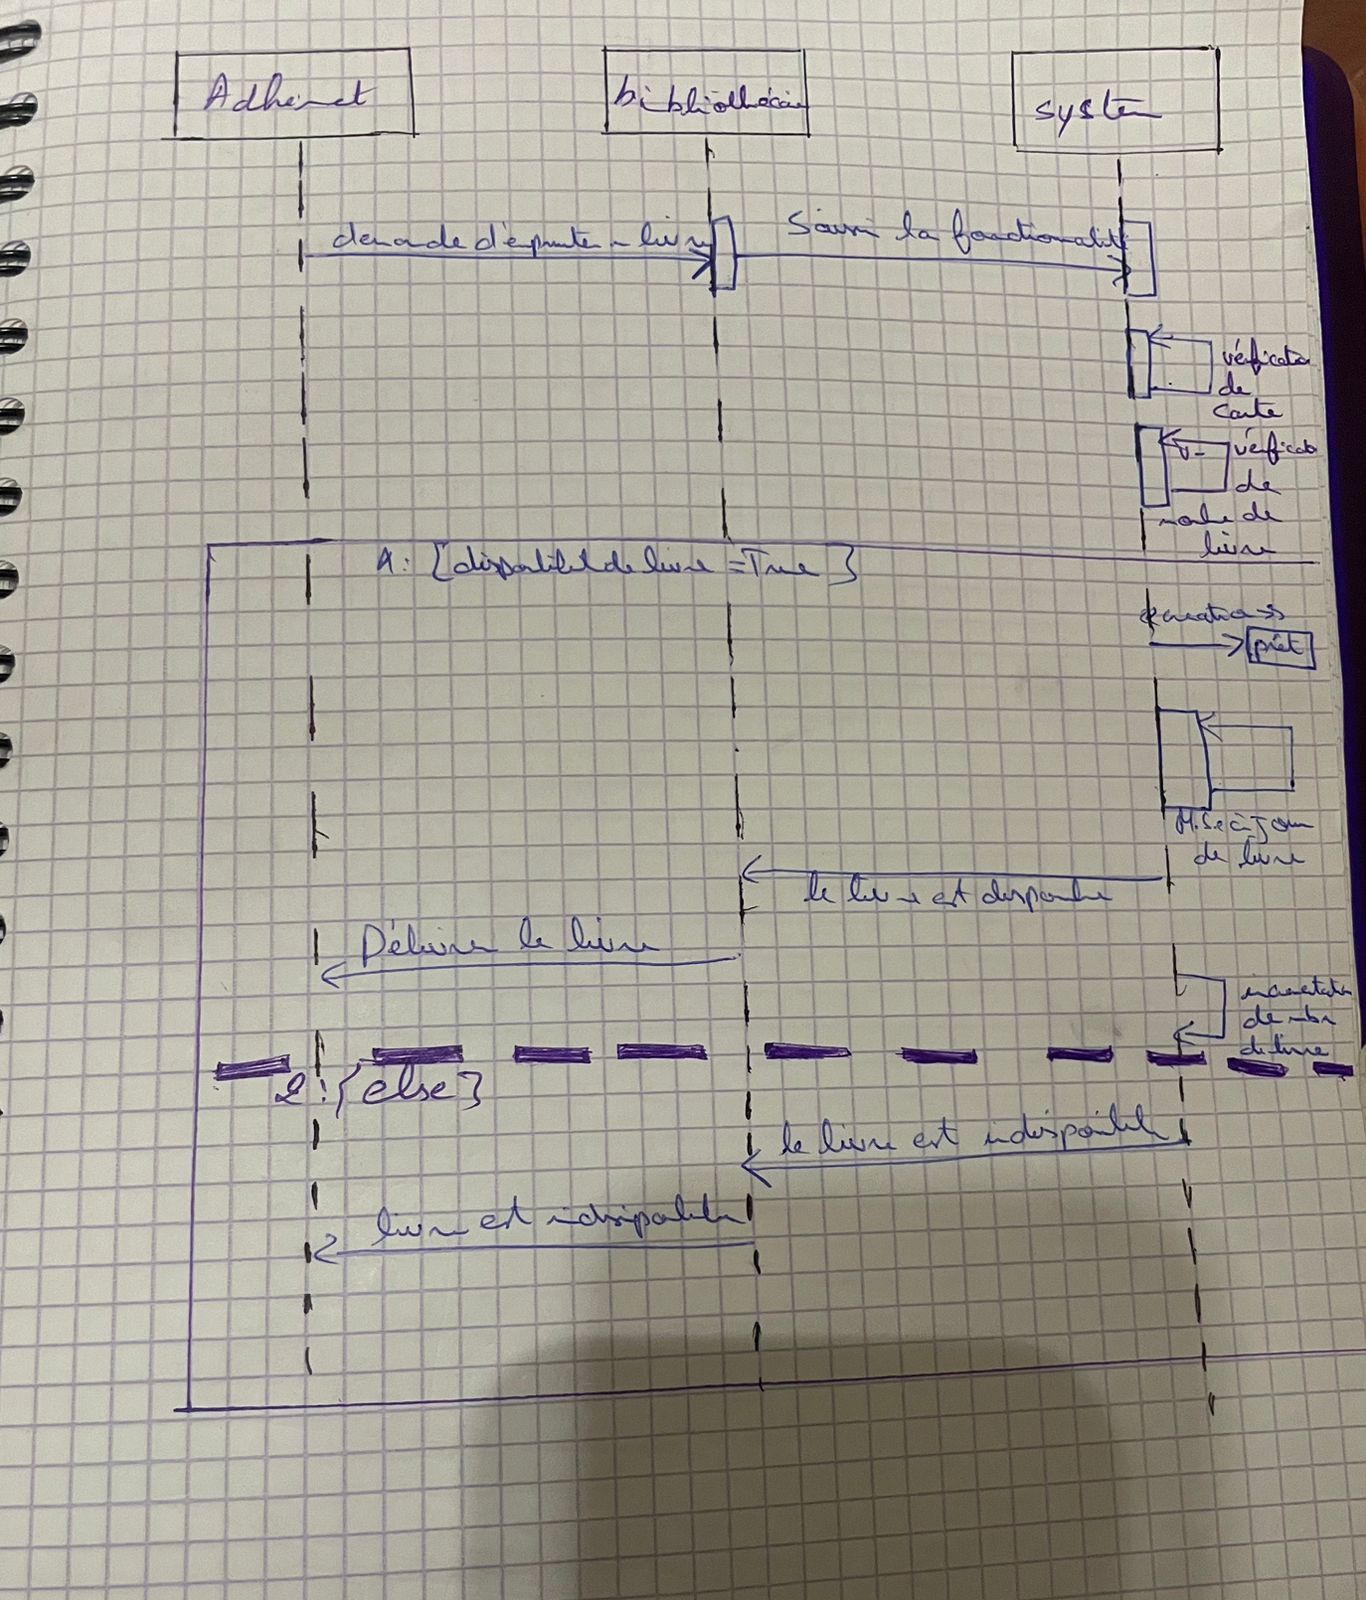 Adhérnet
bibliothécaire
systém
demande d'emprunter un livre
Saisir la fonctionalité
vérification
de
carte
vérificat
de
nombre de
livre
1: [disponibilité de livre = True }
création
prêt
Mise à Jour
de livre
le livre est disponible
Délivrer le livre
incrementation
de nbr
de livre
2: { else }
le livre est indisponible
livre est indisponible